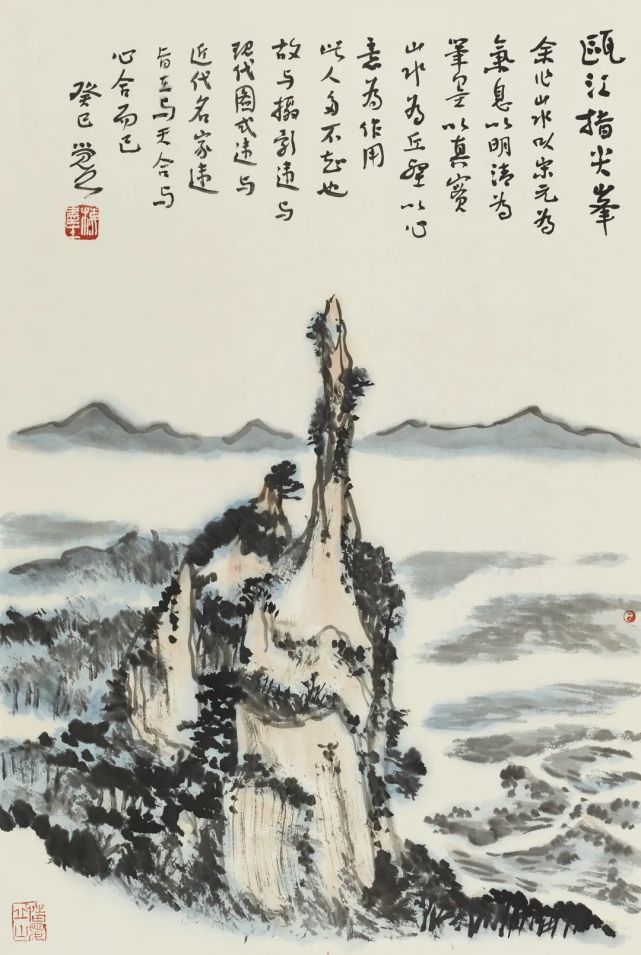 甌江指尖峯
余作山水以宋元為
氣息以明清為
筆墨以真實
山水為丘壑以心
意為作用
此人多不知也
故与攝影违与
现代圖式违与
近代名家违
旨在与天合与
心合而已
癸巳